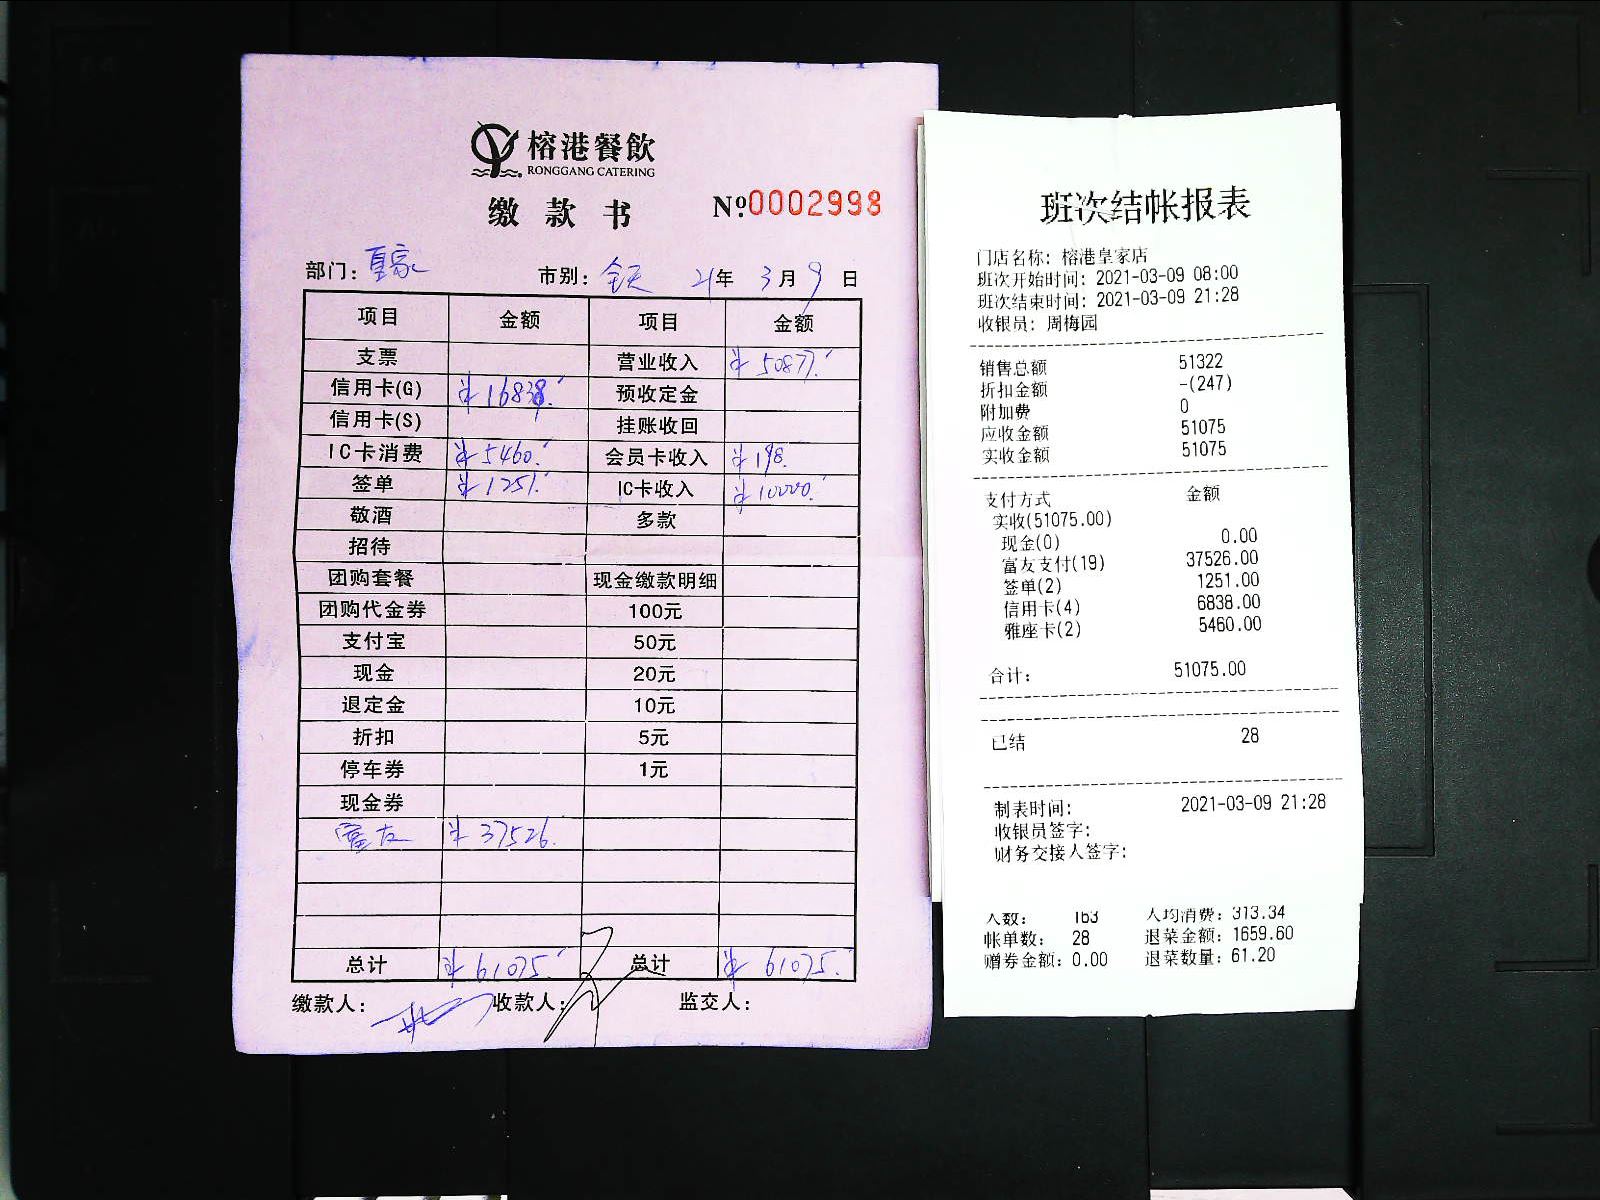 榕港餐飲
RONGGANG CATERING
缴款书 №0002998
部门: 皇家 市别: 全天 21年 3月 9日
项目 金额 项目 金额
支票 营业收入 ¥50877.-
信用卡(G) ¥16838.- 预收定金
信用卡(S) 挂账收回
IC卡消费 ¥5460.- 会员卡收入 ¥198.
签单 ¥1251.- IC卡收入 ¥10000.-
敬酒 多款
招待
团购套餐 现金缴款明细
团购代金券 100元
支付宝 50元
现金 20元
退定金 10元
折扣 5元
停车券 1元
现金券
富友 ¥37526.
总计 ¥61075.- 总计 ¥61075.-
缴款人: 收款人: 监交人:
班次结帐报表
门店名称: 榕港皇家店
班次开始时间: 2021-03-09 08:00
班次结束时间: 2021-03-09 21:28
收银员: 周梅园
销售总额 51322
折扣金额 -(247)
附加费 0
应收金额 51075
实收金额 51075
支付方式 金额
实收(51075.00)
现金(0) 0.00
富友支付(19) 37526.00
签单(2) 1251.00
信用卡(4) 6838.00
雅座卡(2) 5460.00
合计: 51075.00
已结 28
制表时间: 2021-03-09 21:28
收银员签字:
财务交接人签字:
人数: 163 人均消费: 313.34
帐单数: 28 退菜金额: 1659.60
赠券金额: 0.00 退菜数量: 61.20